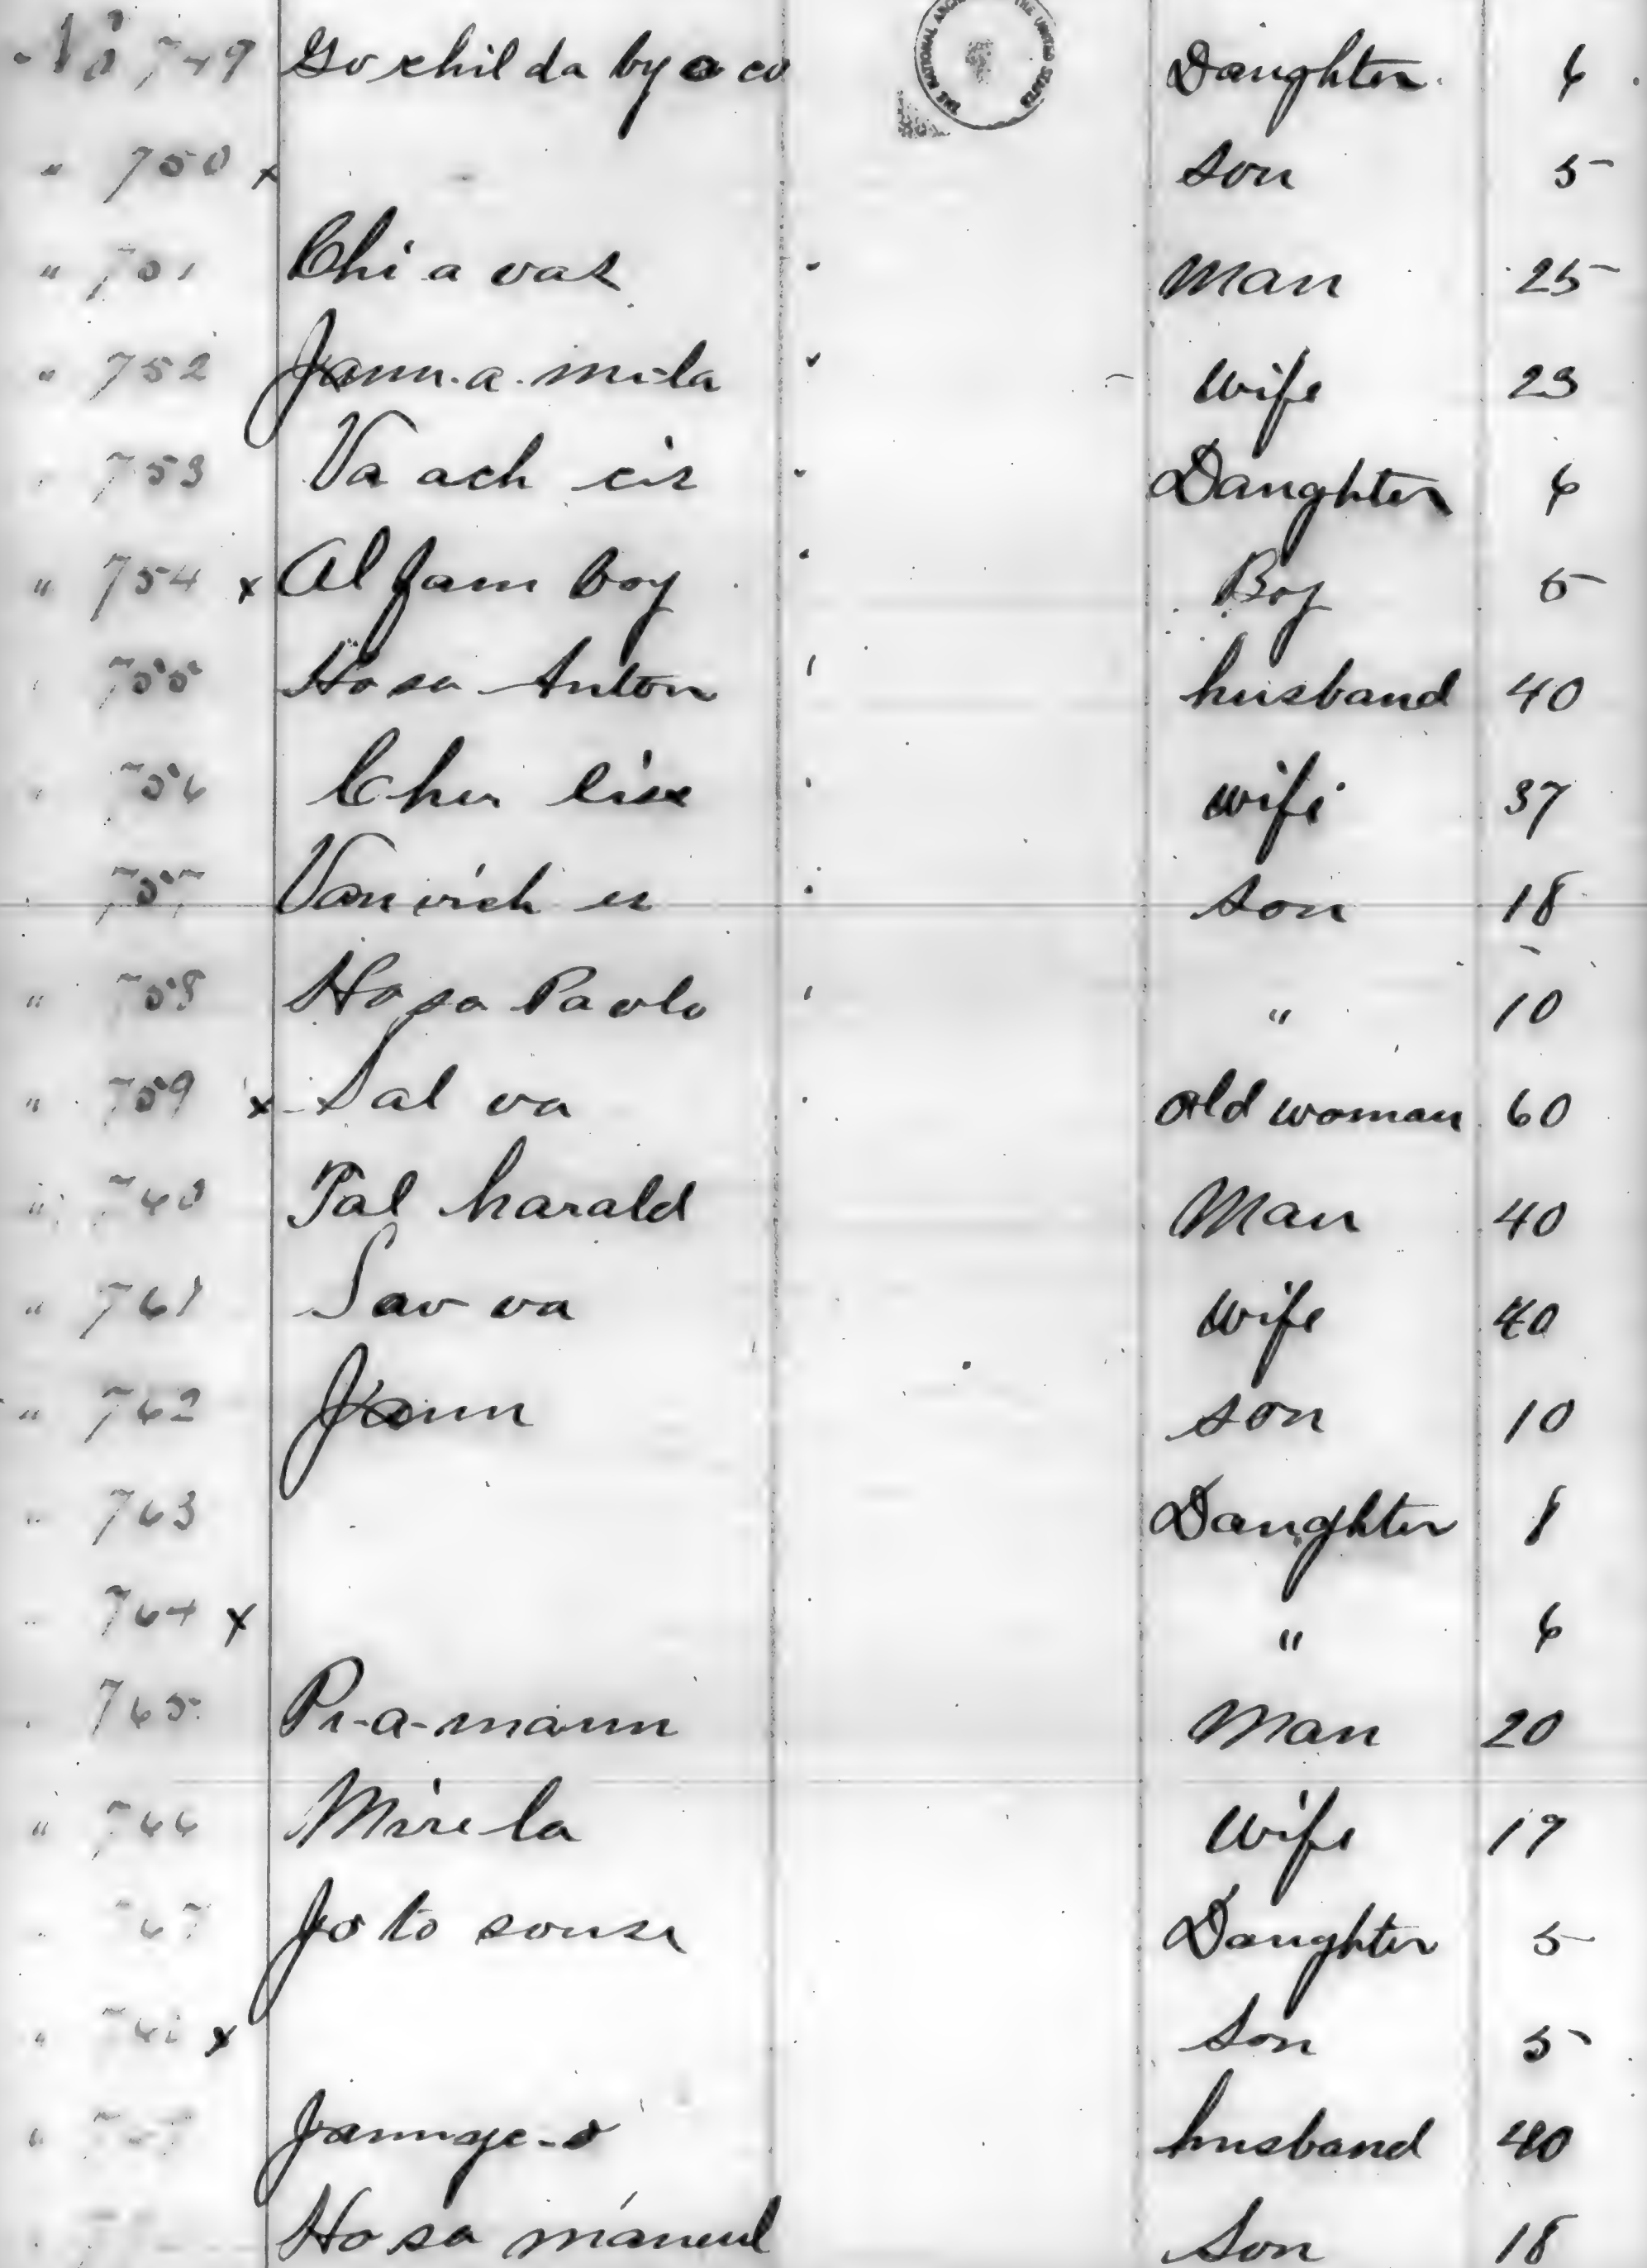 No 749 Go chil da by a co Daughter 6
" 750 x son 5
" 751 Chi a vas man 25
" 752 Jann. a. mi-la wife 23
753 Va ach cis Daughter 6
" 754 x Al Jam boy Boy 5
755 Ho sa Anton husband 40
756 wife 37
757 son 18
" 758 Ho sa Pavlo " 10
" 759 x Sal va old woman 60
" 760 Pal harald Man 40
" 761 Sav va wife 40
" 762 Jann son 10
" 763 Daughter 8
" 764 x " 6
765 Pi-a-mann man 20
" 766 Mire la wife 19
767 Jo to sousa Daughter 5
" x son 5
" husband 40
Ho sa manuel son 18